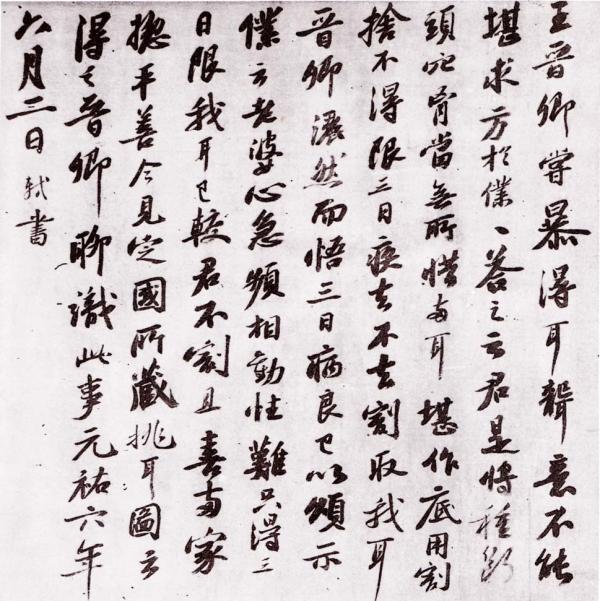 王晉卿嘗暴得耳聾意不能
堪求方於僕〻答之云君是將種斷
頭穴胷當無所惜兩耳堪作底用割
捨不得限三日疾去不去割取我耳
晉卿灑然而悟三日病良已以頌示
僕云老婆心急頻相勸性難只得三
日限我耳已較君不割且喜兩家
揔平善今見定國所藏挑耳圖云
得之晉卿聊識此事元祐六年
六月三日軾書